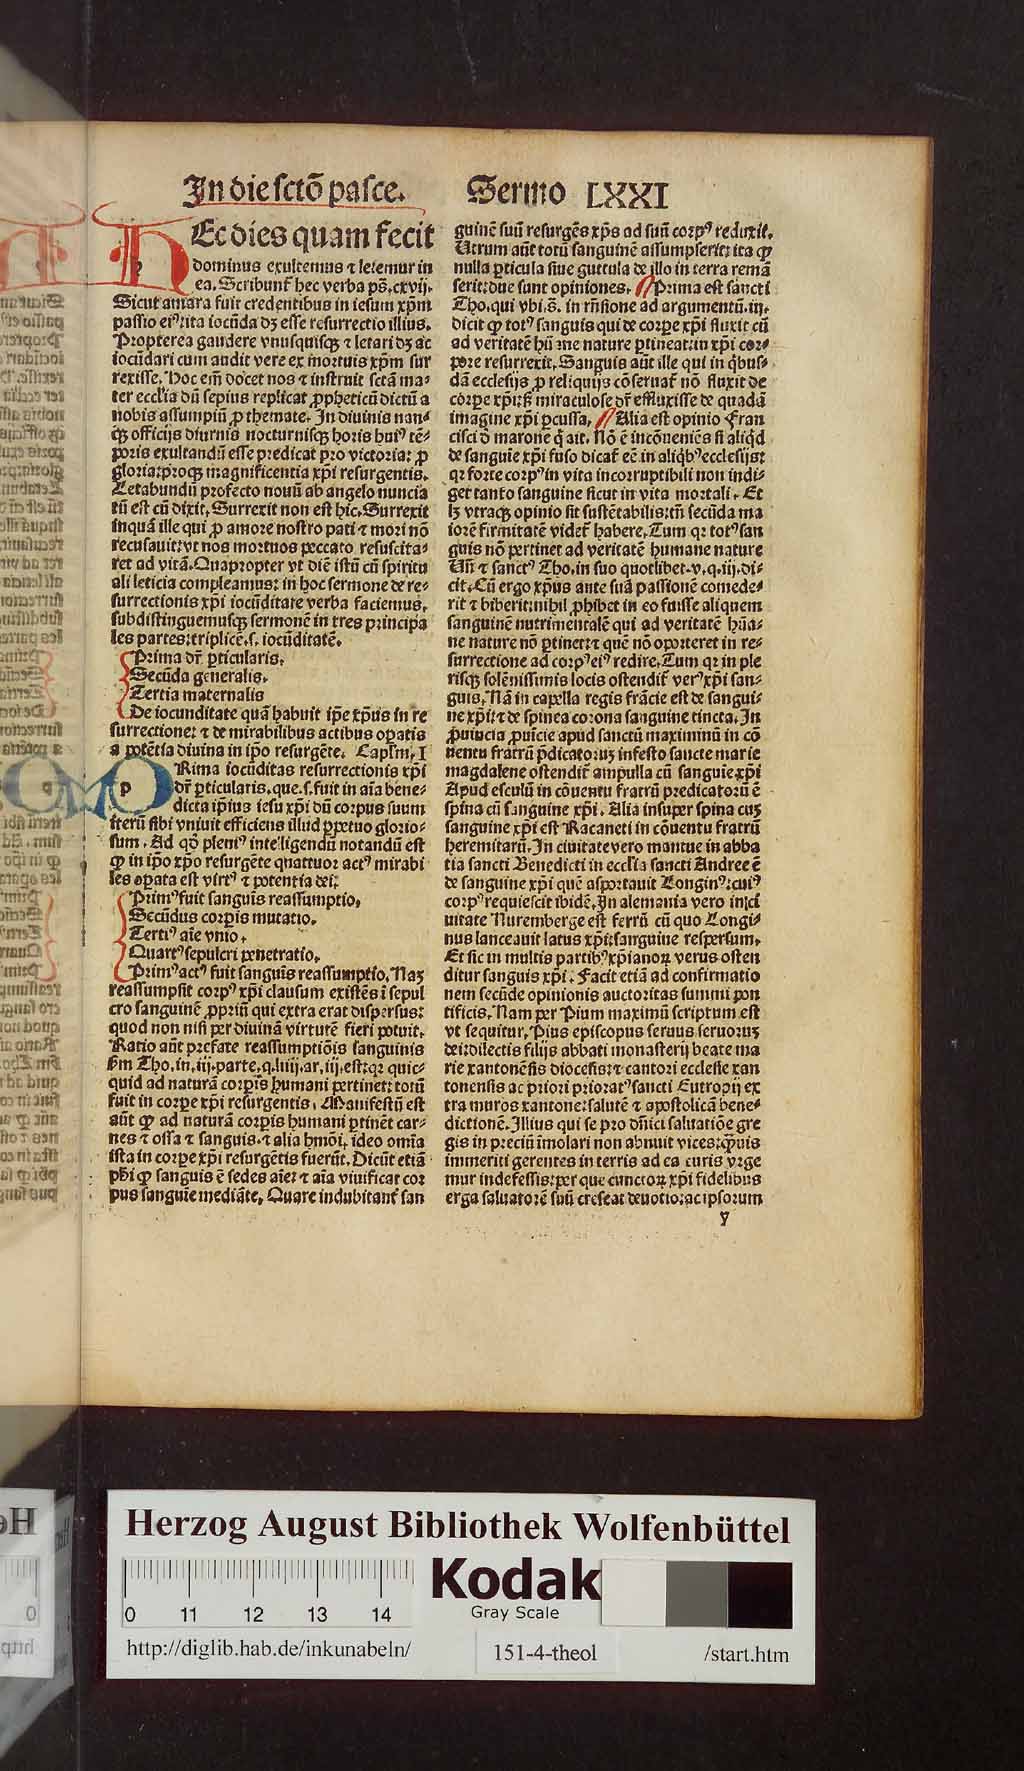 In die sctō pasce. Sermo LXXI
HEc dies quam fecit
dominus exultemus ⁊ letemur in
ea. Scribunt̄ hec verba ps̄. cxvij.
Sicut amara fuit credentibus in iesum xp̄m
passio eiꝰ: ita iocūda dꝫ esse resurrectio illius.
Propterea gaudere vnusquisqꝫ ⁊ letari dꝫ ac
iocūdari cum audit vere ex mortuis xp̄m sur
rexisse. Hoc em̄ docet nos ⁊ instruit sctā ma⸗
ter eccl̄ia dū sepius replicat ꝓpheticū dictū a
nobis assumptū ꝓ themate. In diuinis nan⸗
qꝫ officijs diurnis nocturnisqꝫ horis huiꝰ tē⸗
poris exultandū esse predicat pro victoria: ꝓ
gloria: proqꝫ magnificentia xp̄i resurgentis.
Letabundū profecto nouū ab angelo nuncia
tū est cū dixit. Surrexit non est hic. Surrexit
inquā ille qui ꝓ amore nostro pati ⁊ mori nō
recusauit: vt nos mortuos peccato resuscita⸗
ret ad vitā. Quapropter vt diē istū cū spiritu
ali leticia compleamus: in hoc sermone de re⸗
surrectionis xp̄i iocūditate verba faciemus.
subdistinguemusqꝫ sermonē in tres principa
les partes: triplicē. s. iocūditatē.
Prima dr̄ ꝑticularis.
Secūda generalis.
Tertia maternalis
De iocunditate quā habuit ip̄e xp̄us in re
surrectione: ⁊ de mirabilibus actibus oꝑatis
a potētia diuina in ip̄o resurgēte. Capl̄m. I
PRima iocūditas resurrectionis xp̄i
dr̄ ꝑticularis. que. s. fuit in aīa bene⸗
dicta ip̄ius iesu xp̄i dū corpus suum
iterū sibi vniuit efficiens illud ꝑpetuo glorio⸗
sum. Ad qd̄ pleniꝰ intelligendū notandū est
ꝙ in ip̄o xp̄o resurgēte quattuor actꝰ mirabi
les oꝑata est virtꝰ ⁊ potentia dei.
Primꝰ fuit sanguis reassumptio.
Secūdus corꝑis mutatio.
Tertiꝰ aīe vnio.
Quartꝰ sepulcri penetratio.
Primꝰ actꝰ fuit sanguīs reassumptio. Naꝫ
reassumpsit corpꝰ xp̄i clausum existēs ī sepul
cro sanguinē ꝓpriū qui extra erat dispersus:
quod non nisi per diuinā virtutē fieri potuit.
Ratio aūt prefate reassumptiōis sanguinis
scd̄m Tho. in. iij. parte. q. liiij. ar. iij. est: qꝛ quic⸗
quid ad naturā corꝑis humani pertinet: totū
fuit in corꝑe xp̄i resurgentis. Manifestū est
aūt ꝙ ad naturā corꝑis humani ꝑtinēt car⸗
nes ⁊ ossa ⁊ sanguis. ⁊ alia hmōi. ideo omīa
ista in corꝑe xp̄i resurgētis fuerūt. Dicūt etiā
ph̄i ꝙ sanguis ē sedes aīe: ⁊ aīa viuificat cor
pus sanguīe mediāte. Quare indubitant̄ san
guinē suū resurgēs xp̄s ad suū corpꝰ reduxit.
Utrum aūt totū sanguinē assumpserit: ita ꝙ
nulla ꝑticula siue guttula de illo in terra remā
serit: due sunt opiniones. Prima est sancti
Tho. qui vbi. s̄. in rn̄sione ad argumentū. iij.
dicit ꝙ totꝰ sanguis qui de corꝑe xp̄i fluxit cū
ad veritatē hūane nature ꝑtineat: in xp̄i cor⸗
pore resurrexit. Sanguis aūt ille qui in qͥbus⸗
dā ecclesijs ꝓ reliquijs cōseruat̄ nō fluxit de
corꝑe xp̄i: sꝫ miraculose dr̄ effluxisse de quadā
imagine xp̄i ꝑcussa. Alia est opinio Fran
cisci d̄ marone q̄ ait. Nō ē incōueniēs si aliqͥd
de sanguīe xp̄i fuso dicat̄ eē in aliqͥbꝰ ecclesijs:
qꝛ forte corpꝰ in vita incorruptibili non indi⸗
get tanto sanguine sicut in vita mortali. Et
lꝫ vtraqꝫ opinio sit sustētabilis: tn̄ secūda ma
iorē firmitatē videt̄ habere. Tum qꝛ totꝰ san
guis nō pertinet ad veritatē humane nature
Un̄ ⁊ sanctꝰ Tho. in suo quotlibet. v. q. iij. di⸗
cit. Cū ergo xp̄us ante suā passionē comede⸗
rit ⁊ biberit: nihil ꝓhibet in eo fuisse aliquem
sanguinē nutrimentalē qui ad veritatē hūa⸗
ne nature nō ꝑtinet: ⁊ quē nō oporteret in re⸗
surrectione ad corpꝰ eiꝰ redire. Tum qꝛ in ple
risqꝫ solēnissimis locis ostendit̄ verꝰ xp̄i san⸗
guis. Nā in capella regis frācie est de sangui⸗
ne xp̄i: ⁊ de spinea corona sanguine tincta. In
ꝓuincia ꝓuīcie apud sanctū maximinū in cō
uentu fratrū p̄dicatoruꝫ infesto sancte marie
magdalene ostendit̄ ampulla cū sanguīe xp̄i
Apud esculū in cōuentu fratrū predicatorū ē
spina cū sanguine xp̄i. Alia insuper spina cuꝫ
sanguine xp̄i est Racaneti in cōuentu fratrū
heremitarū. In ciuitate vero mantue in abba
tia sancti Benedicti in eccl̄ia sancti Andree ē
de sanguine xp̄i quē asportauit Longinꝰ: cuiꝰ
corpꝰ requiescit ibidē. In alemania vero in ci
uitate Nuremberge est ferrū cū quo Longi⸗
nus lanceauit latus xp̄i: sanguine respersum.
Et sic in multis partibꝰ xp̄ianoꝝ verus osten
ditur sanguis xp̄i. Facit etiā ad confirmatio
nem secūde opinionis auctoritas summi pon
tificis. Nam per Pium maximū scriptum est
vt sequitur. Pius episcopus seruus seruoruꝫ
dei: dilectis filijs abbati monasterij beate ma
rie xantonēsis diocesis: ⁊ cantori ecclesie xan
tonensis ac priori prioratꝰ sancti Eutropij ex
tra muros xantone: salutē ⁊ apostolicā bene⸗
dictionē. Illius qui se pro dn̄ici saluatiōe gre
gis in preciū īmolari non abnuit vices: q̄uis
immeriti gerentes in terris ad ea curis vrge
mur indefessis: per que cunctoꝝ xp̄i fidelibus
erga saluatorē suū crescat deuotio: ac ipsorum
y
Herzog August Bibliothek Wolfenbüttel
Kodak
Gray Scale
0 11 12 13 14
http://diglib.hab.de/inkunabeln/ 151-4-theol /start.htm